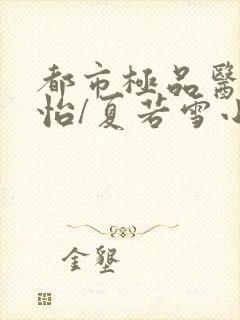 都市極品醫
怡/夏若雪小
金壑